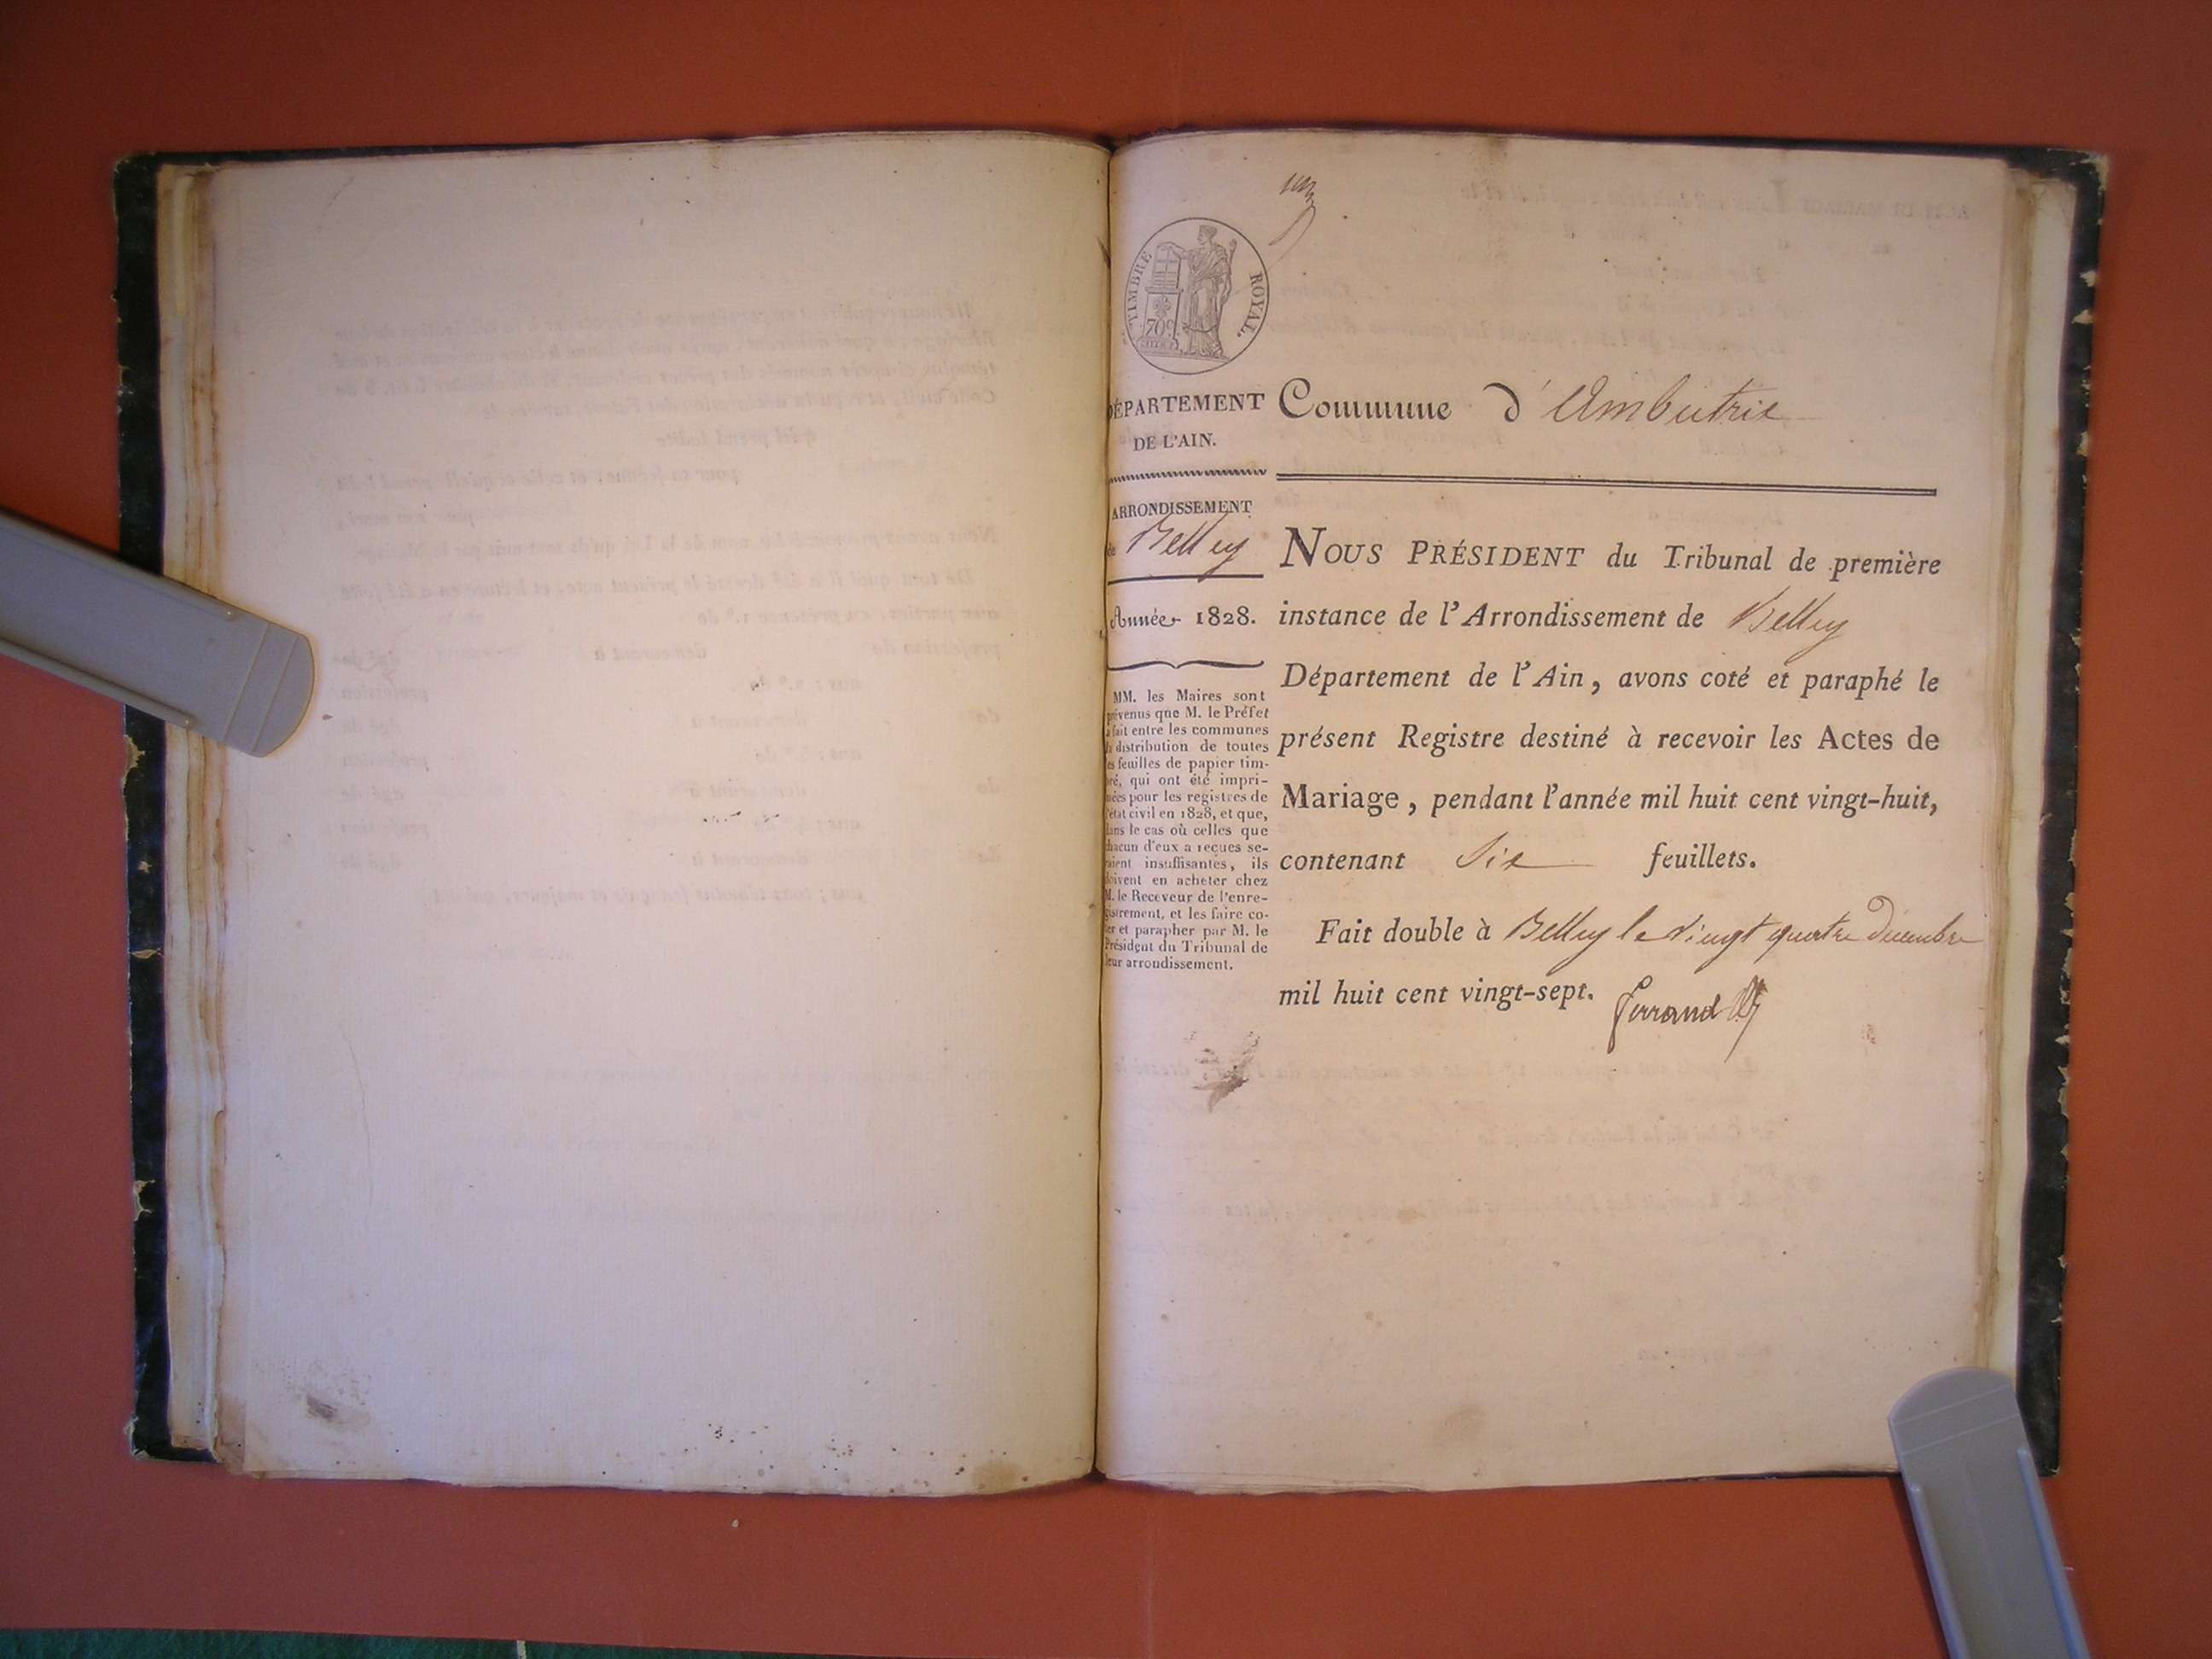 un
TIMBRE ROYAL.
70c
DÉPARTEMENT
DE L'AIN.
ARRONDISSEMENT
de Belley
Année 1828.
MM. les Maires sont
prévenus que M. le Préfet
a fait entre les communes
la distribution de toutes
les feuilles de papier tim-
bré, qui ont été impri-
mées pour les registres de
l'état civil en 1828, et que,
dans le cas où celles que
chacun d'eux a reçues se-
raient insuffisantes, ils
doivent en acheter chez
M. le Receveur de l'enre-
gistrement, et les faire co-
ter et parapher par M. le
Président du Tribunal de
leur arrondissement.
Commune d'Ambutrix
NOUS PRÉSIDENT du Tribunal de première
instance de l'Arrondissement de Belley
Département de l'Ain, avons coté et paraphé le
présent Registre destiné à recevoir les Actes de
Mariage, pendant l'année mil huit cent vingt-huit,
contenant Six feuillets.
Fait double à Belley le vingt quatre décembre
mil huit cent vingt-sept.
Ferrand